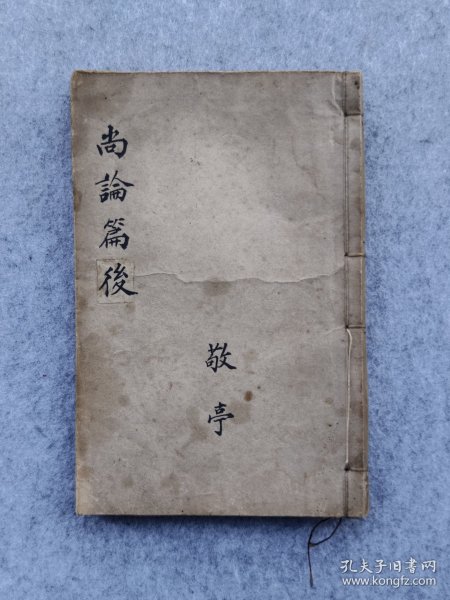 尚論篇後
敬亭
孔夫子旧书网
www.kongfz.com